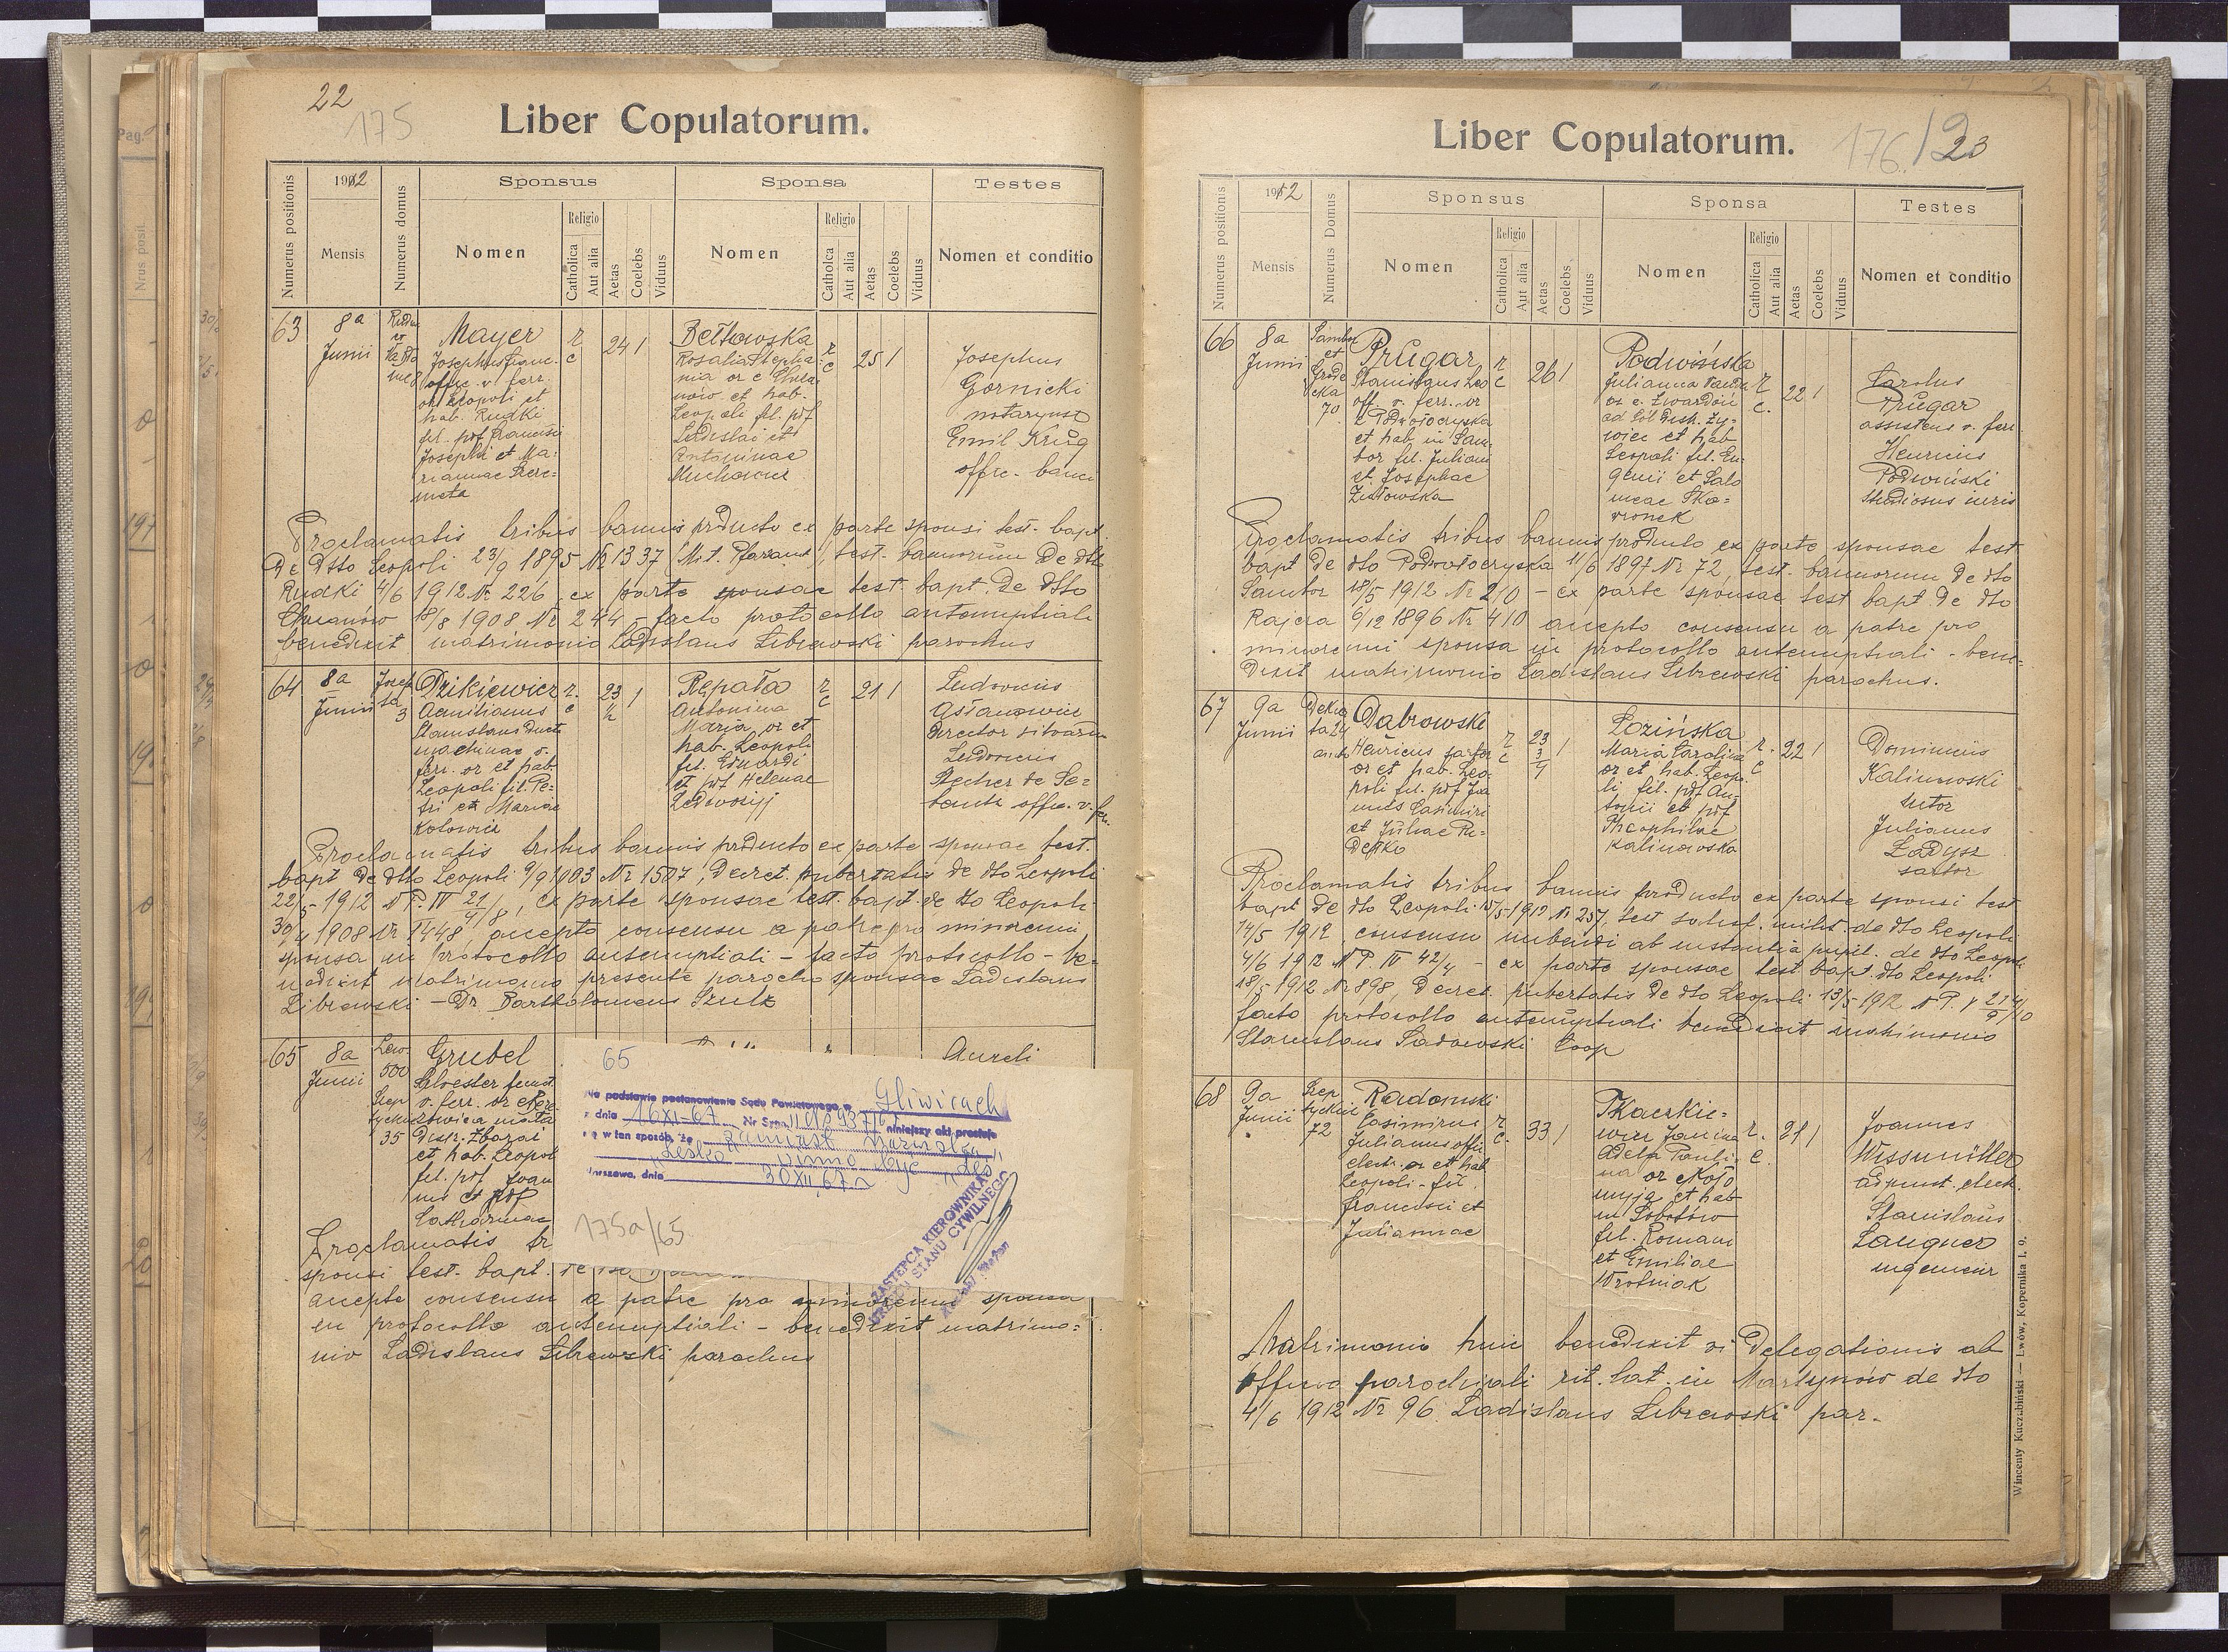 22
175
Liber Copulatorum.
Numerus positionis
1912
Mensis
Numerus domus
Sponsus
Nomen
Religio
Catholica
Aut alia
Aetas
Coelebs
Viduus
Sponsa
Nomen
Religio
Catholca
Aut alia
Aetas
Coelebs
Viduus
Testes
Nomen et conditio
63
8a
Junii
Mayer
Josephus Franc.
offic. v. ferr.
or Leopoli et
hab. Rudki
fil. pdf Francisci
Josephi et Ma-
riannae
r c
24 1
Bełtowska
Rosalia Stepha-
nia or e Chrza-
nów et hab.
Leopoli fil. pdf
Ladislai et
Antoninae
r c
25 1
Josephus
Gornicki
notaryusz
Emil Krug
offic. banci
Proclamatis tribus bannis producto ex parte sponsi test. bapt.
de dtto Leopoli 23/9 1895 Nr 1337 test. bannorum de dtto
Rudki 4/6 1912 Nr 226 ex parte sponsae test. bapt. de dtto
Chrzanów 18/8 1908 Nr 244 facto protocollo antenuptiali
benedixit matrimonio Ladislaus Librewski parochus
64
8a
Junii
3
Dzikiewicz
Aemilianus
Stanislaus duct.
machinae v.
ferr. or et hab.
Leopoli fil. Pe-
tri et Mariae
Kotowicz
r. c
23 1/2 1
Rępała
Antonina
Maria or et
hab. Leopoli
fil. Eduardi
et pdf Helenae
r c
21 1
Ludovicus
director
Ludovicus
Stecher de Se-
benitz offic. v. ferr.
Proclamatis tribus bannis producto ex parte sponsae test.
bapt de dtto Leopoli 9/9 1903 Nr 1507, Decret. pubertatis de dto Leopoli
22/5 1912 N P. IV 21/4/8, ex parte sponsae test. bapt. de dto Leopoli
30/4 1908 Nr 1448 accepto consensu a patre pro minorenni
sponsa in protocollo antenuptiali - facto protocollo - be-
nedixit matrimonio presente parocho sponsae Ladislaus
Librewski - Dr. Bartholomeus Szulz
65
8a
Junii
Lew.
500
35
Grubel
Silvester funct.
v. ferr. or e
mała
Distr. Zbaraż
et hab. Leopoli
fil. pdf Joan
nis et pdf
Catharinae
Aureli
65
Na podstawie postanowienia Sądu Powiatowego w Gliwicach
z dnia 16 XI-67 Nr Sygn.
niniejszy akt prostuje
się w ten sposób, że zamiast nazwiska
"Leśko" winno być "Leś"
Warszawa, dnia 30 XII. 67 r.
175a/65
ZASTĘPCA KIEROWNIKA
URZĘDU STANU CYWILNEGO
Proclamatis tr
sponsi test. bapt.
accepto consensu a patre pro minorenni sponsa
in protocollo antenuptiali - benedixit matrimo-
nio Ladislaus Librewski parochus
176/
23
Liber Copulatorum.
Numerus positionis
1912
Mensis
Numerus Domus
Sponsus
Nomen
Religio
Catholica
Aut alia
Aetas
Coelebs
Viduus
Sponsa
Nomen
Religio
Catholica
Aut alia
Aetas
Coelebs
Viduus
Testes
Nomen et conditio
66
8a
Junii
Sambor
et
Gróde
cka
70
Prugar
Stanislaus Leo
off. v. ferr. or
e Podwołoczyska
et hab in Sam-
bor fil. Juliani
et Josephae
Zisłowska
r c
26 1
Podwińska
Julianna Vanda
or. e. Zwardoń
ad Sól Distr. Ży-
wiec et hab
Leopoli fil. Eu-
genii et Salo
meae Ska-
wronek
r c.
22 1
Carolus
Prugar
assistens v. ferr
Henricus
Podwiński
studiosus iuris
Proclamatis tribus bannis producto ex parte sponsae test
bapt de dto Podwołoczyska 11/6 1897 Nr 72, test. bannorum de dto
Sambor 18/5 1912 Nr 210 - ex parte sponsae test bapt. de dto
Rajcza 6/12 1896 Nr 410 accepto consensu a patre pro
minorenni sponsa in protocollo antenuptiali - bene-
dixit matrimonio Ladislaus Librewski parochus.
67
9a
Junii
Dąbrowski
Henricus sartor
or et hab. Leo-
poli fil. pdf Joa
nnis Casimiri
et Juliae
r c
23 3/4 1
Łozińska
Maria Carolina
or et hab. Leopo-
li fil. pdf An-
tonii et pdf
Theophilae
Kalinowska
r. c
22 1
Dominicus
Kalinowski
sutor
Julianus
Ładysz
sartor
Proclamatis tribus bannis producto ex parte sponsi test
bapt de dto Leopoli 15/5 1912 Nr 257, test milit. de dto Leopoli
14/5 1912, consensu nubendi ab instantia pupil. de dto Leopoli
4/6 1912 N P. IV 42/4 - ex parte sponsae test bapt. dto Leopoli
18/5 1912 Nr 898, Decret. pubertatis de dto Leopoli 13/5 1912 N P. V
facto protocollo antenuptiali benedixit matrimonio
Stanislaus Sadowski Coop
68
9a
Junii
72
Radomski
Casimirus
Julianus offic
electr. or et hab
Leopoli - fil.
Francisci et
Juliannae
r c.
33 1
Tkaczkie-
wicz Janina
Adela Pauli-
na or e Koło
myja et hab
in
fil. Romani
et Emiliae
Wroźniak
r. c
21 1
Joannes
Wissmüller
adjunct. elect.
Stanislaus
Langner
ingenieur
Matrimonio huic benedixit vi Delegationis ab
officio parochiali rit. lat. in Martynów de dto
4/6 1912 Nr 96. Ladislaus Librewski par.
Wincenty Kuczabiński — Lwów, Kopernika l. 9.